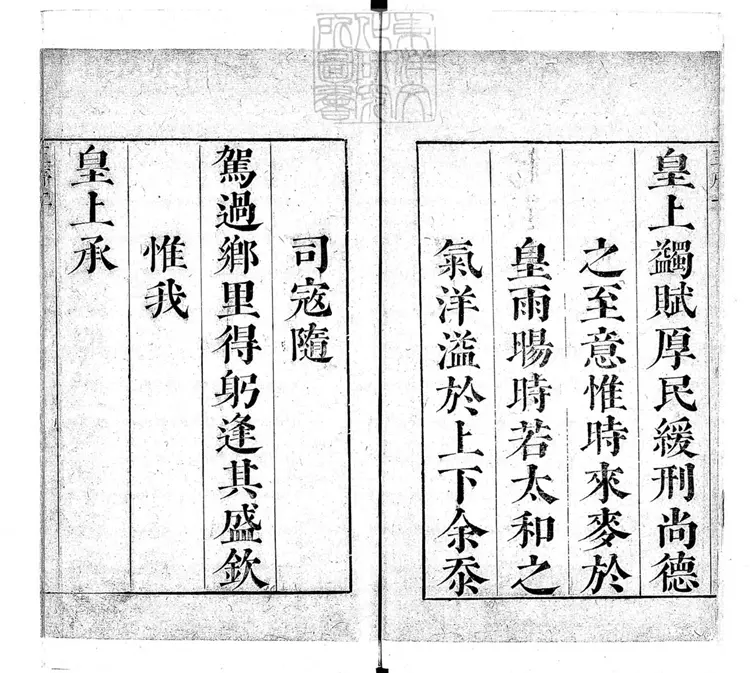 皇上蠲賦厚民緩刑尚德
之至意惟時來麥於
皇雨暘時若太和之
氣洋溢於上下余忝
司寇隨
駕過鄉里得躬逢其盛欽
惟我
皇上承